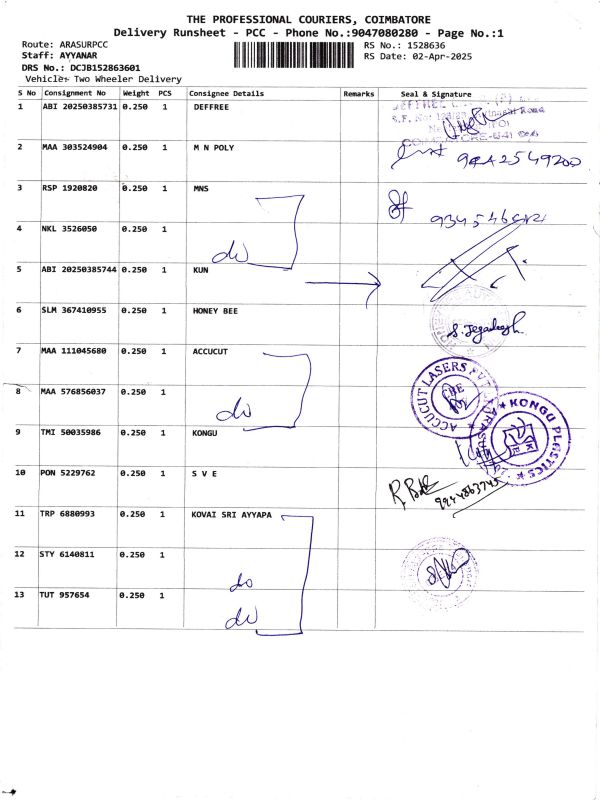 THE PROFESSIONAL COURIERS, COIMBATORE
Delivery Runsheet - PCC - Phone No.:9047080280 - Page No.:1
Route: ARASURPCC
Staff: AYYANAR
DRS No.: DCJB152863601
Vehicle:- Two Wheeler Delivery
RS No.: 1528636
RS Date: 02-Apr-2025
S No Consignment No Weight PCS Consignee Details Remarks Seal & Signature
1 ABI 20250385731 0.250 1 DEFFREE
2 MAA 303524904 0.250 1 M N POLY
3 RSP 1920820 0.250 1 MNS
4 NKL 3526050 0.250 1
do
5 ABI 20250385744 0.250 1 KUN
6 SLM 367410955 0.250 1 HONEY BEE
S. Jegadeesh
7 MAA 111045680 0.250 1 ACCUCUT
ACCUCUT LASERS PVT
8 MAA 576856037 0.250 1
do
KONGU PLASTICS
9 TMI 50035986 0.250 1 KONGU
10 PON 5229762 0.250 1 S V E
9944863745
11 TRP 6880993 0.250 1 KOVAI SRI AYYAPA
12 STY 6140811 0.250 1
do
13 TUT 957654 0.250 1
do